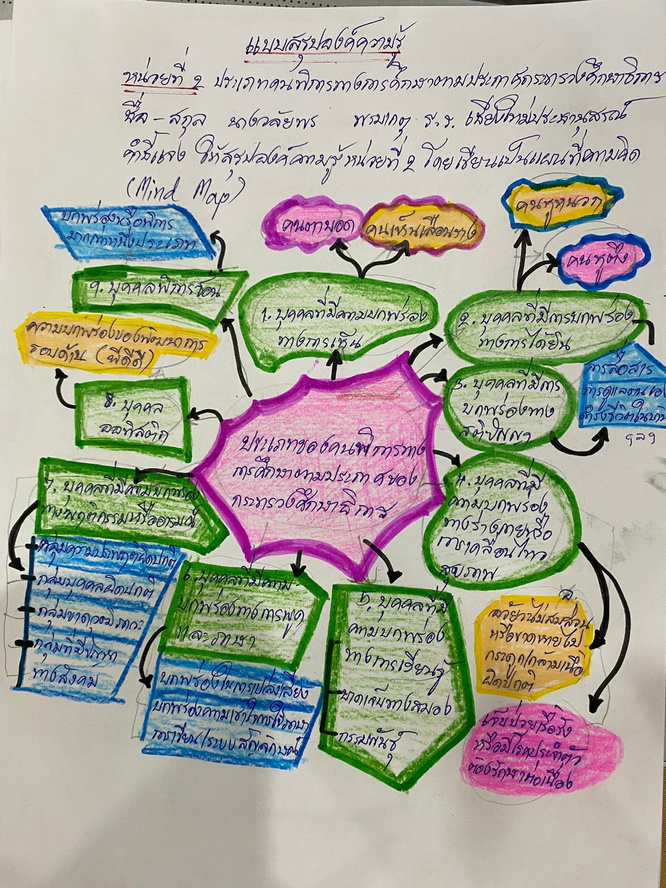 แบบสรุปองค์ความรู้
หน่วยที่ 2 ประเภทคนพิการทางการศึกษาตามประกาศกระทรวงศึกษาธิการ
ชื่อ - สกุล นางวลัยพร
คำชี้แจง ให้สรุปองค์ความรู้หน่วยที่ 2 โดยเขียนเป็นแผนที่ความคิด
(Mind Map)
ประเภทของคนพิการทาง
การศึกษาตามประกาศของ
กระทรวงศึกษาธิการ
1. บุคคลที่มีความบกพร่อง
ทางการเห็น
คนตาบอด
คนเห็นเลือนราง
2. บุคคลที่มีการบกพร่อง
ทางการได้ยิน
คนหูหนวก
คนหูตึง
3. บุคคลที่มีการ
บกพร่องทาง
สติปัญญา
การสื่อสาร
การดูแลตนเอง
ฯลฯ
4. บุคคลที่มี
ความบกพร่อง
ทางร่างกายหรือ
การเคลื่อนไหว
สุขภาพ
หรือขาดหายไป
กระดูกกล้ามเนื้อ
ผิดปกติ
เจ็บป่วยเรื้อรัง
หรือมีโรคประจำตัว
ต้องรักษาต่อเนื่อง
5. บุคคลที่มี
ความบกพร่อง
ทางการเรียนรู้
บาดเจ็บทางสมอง
กรรมพันธุ์
6. บุคคลที่มีความ
บกพร่องทางการพูด
และภาษา
บกพร่องในการเปล่งเสียง
บกพร่องความเข้าใจการใช้ภาษา
7. บุคคลที่มีความบกพร่อง
ทางพฤติกรรมหรืออารมณ์
กลุ่มความประพฤติผิดปกติ
กลุ่มบุคคลผิดปกติ
กลุ่มขาดวุฒิภาวะ
กลุ่มที่มีปัญหา
ทางสังคม
8. บุคคล
ออทิสติก
ความบกพร่องของพัฒนาการ
รอบด้าน (พีดีดี)
9. บุคคลพิการซ้อน
บกพร่องหรือพิการ
มากกว่าหนึ่งประเภท